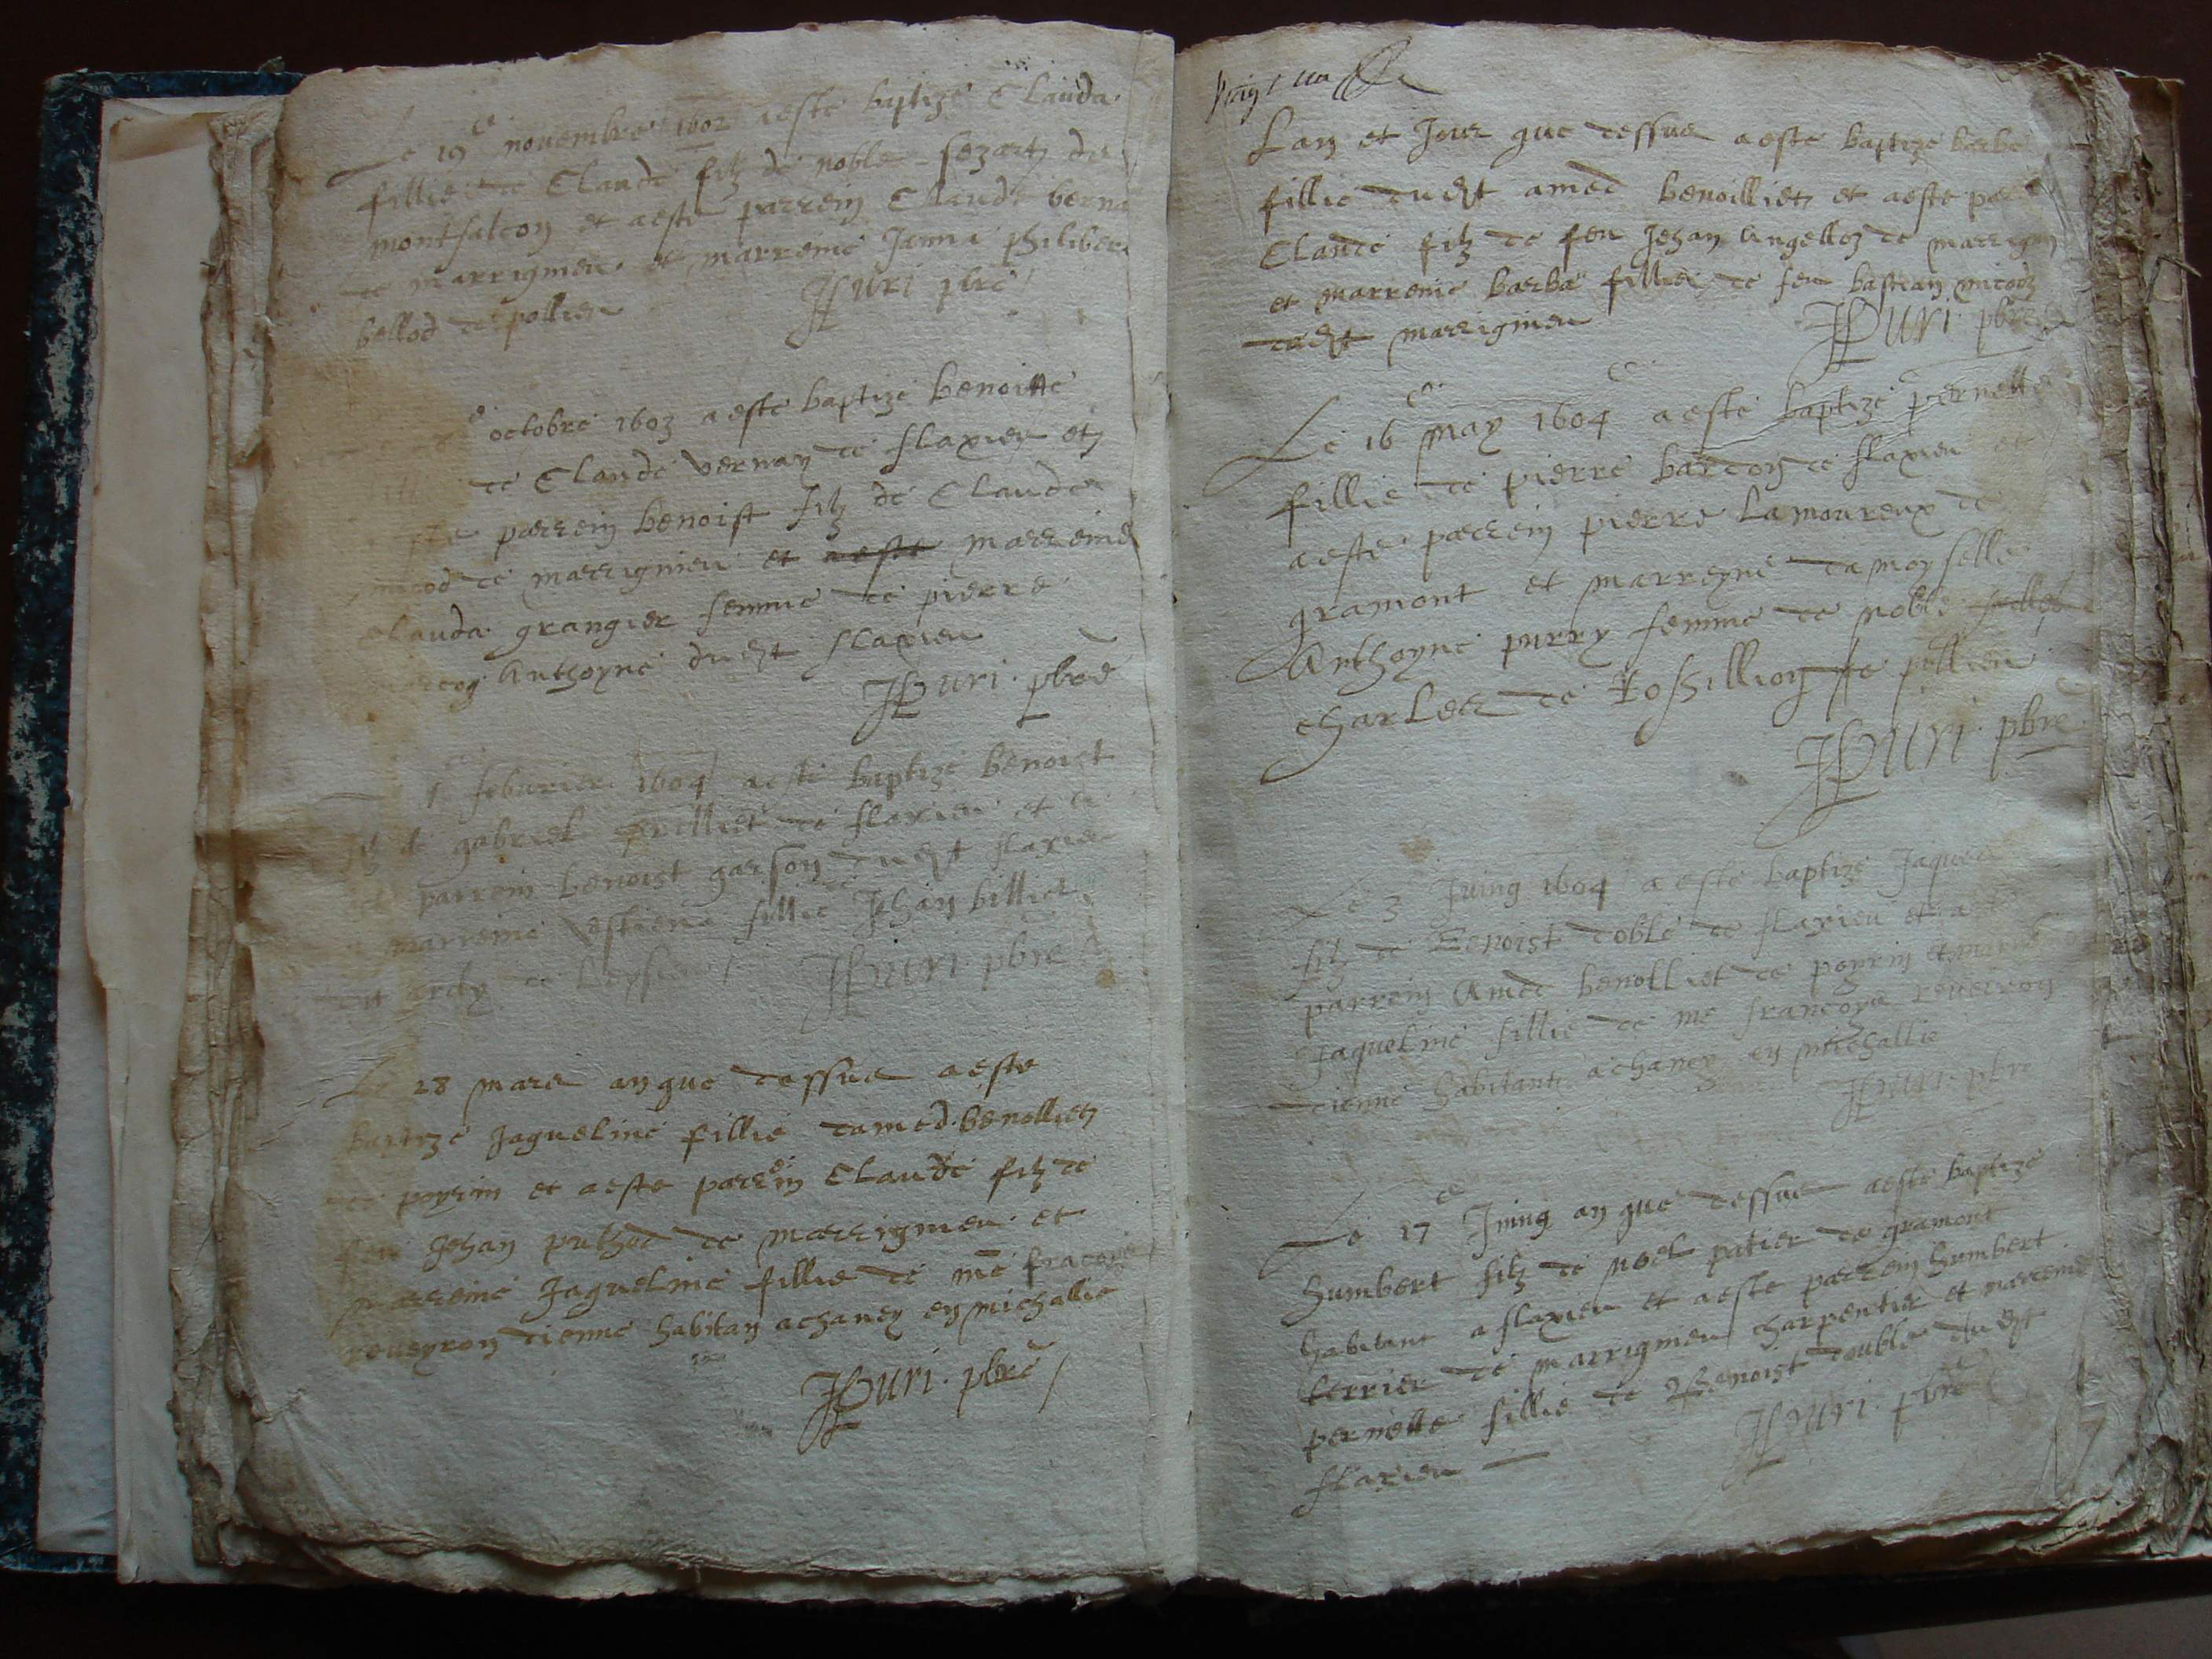 Le 19e novembre 1602 a este baptize Clauda
fillie de Claude filz de noble sezarz du
montfalcon et a este parrein Claude
de marrignieu et marreine Janna philiber
bellod de pollieu
JPuri pbre
octobre 1603 a este baptize benoitte
de Claude vernay de flaxieu et
parrein benoist filz de Claude
de marrignieu et aeste marreine
Clauda grangier femme de pierre
Anthoyne dudit flaxieu
JPuri pbre
feburier 1604 a este baptize benoist
filz de gabriel de flaxieu et
parrein benoist garson dudit flaxieu
marreine estiene fillie de Jehan billiet
de
JPuri pbre
Le 28 mars an que dessus a este
baptize Jaqueline fillie damed benolliet
de poyrin et a este parrein Claude filz de
feu Jehan puthod de marrignieu et
marreine Jaqueline fillie de me fracoys
reveyron dienne habitan a chaney en michallie
JPuri pbre
Lan et Jour que dessus a este baptize barba
fillie dudit amed benoilliet et a este
Claude filz de feu Jehan angelloz de marrigni
et marreine barba fillie de feu bastian nicodz
dudit marrignieu
JPuri pbre
Le 16e may 1604 a este baptize pernette
fillie de pierre bardon de flaxieu et
a este parrein pierre Lamoureux de
gramont et marreyne damoyselle
Anthoyne purry femme de noble
charles de Rossillion de pollieu
JPuri pbre
Le 3 Juing 1604 a este baptize Jaques
filz de Benoist doble de flaxieu et a este
parrein Amed benolliet de poyrin et marreine
Jaqueline fillie de me francoys reveyron
dienne habitant a chaney en michallie
JPuri pbre
Le 17e Juing an que dessus a este baptize
humbert filz de noel patier de gramont
habitant a flaxieu et a este parrein humbert
terrier de marrignieu charpentier et marreine
pernette fillie de benoist double dudit
flaxieu
JPuri pbre